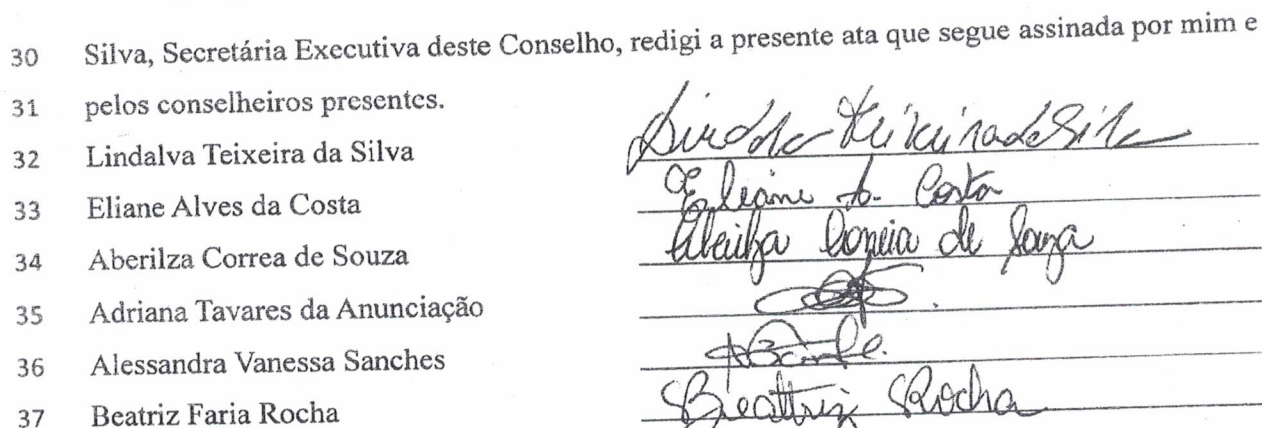 30 Silva, Secretária Executiva deste Conselho, redigi a presente ata que segue assinada por mim e
31 pelos conselheiros presentes.
32 Lindalva Teixeira da Silva Teixeira da Silva
33 Eliane Alves da Costa Eliane A. Costa
34 Aberilza Correa de Souza Aberilza Correia de Souza
35 Adriana Tavares da Anunciação
36 Alessandra Vanessa Sanches
37 Beatriz Faria Rocha Beattriz Rocha